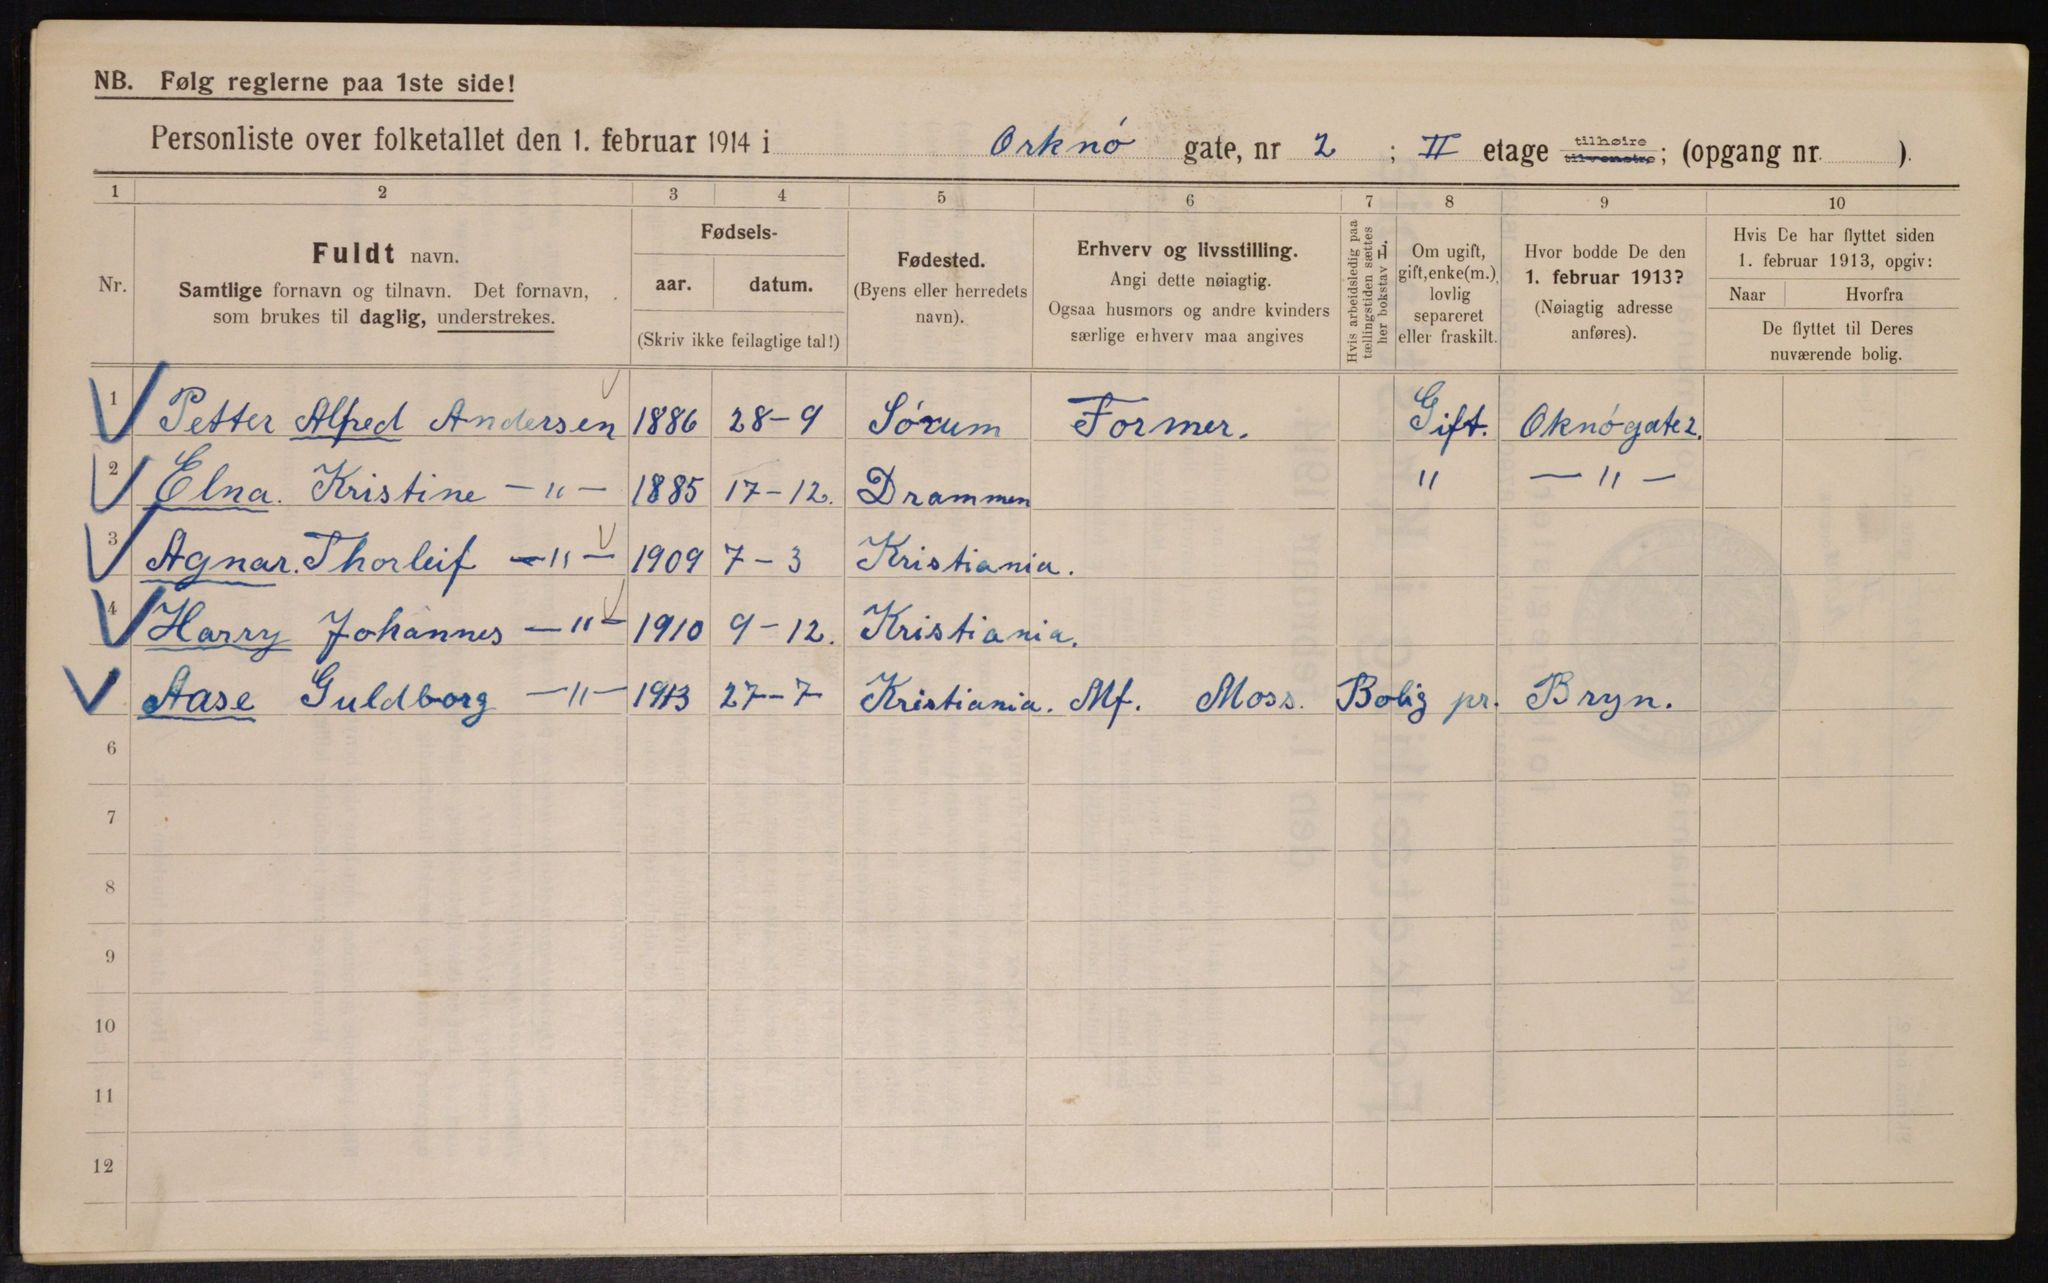 NB. Følg reglerne paa 1ste side!
Personliste over folketallet den 1. februar 1914 i Orknø gate, nr 2 ; II etage tilhøire tilvenstre; (opgang nr. ).
1 2 3 4 5 6 7 8 9 10
Nr.
Fuldt navn.
Samtlige fornavn og tilnavn. Det fornavn,
som brukes til daglig, understrekes.
Fødsels-
aar. datum.
(Skriv ikke feilagtige tal!)
Fødested.
(Byens eller herredets
navn).
Erhverv og livsstilling.
Angi dette nøiagtig.
Ogsaa husmors og andre kvinders
særlige erhverv maa angives
Hvis arbeidsledig paa
tællingstiden sættes
her bokstav L.
Om ugift,
gift, enke(m.),
lovlig
separeret
eller fraskilt.
Hvor bodde De den
1. februar 1913?
(Nøiagtig adresse
anføres).
Hvis De har flyttet siden
1. februar 1913, opgiv:
Naar Hvorfra
De flyttet til Deres
nuværende bolig.
1 Petter Alfred Andersen 1886 28-9 Sörum Former. Gift. Oknógate 2.
2 Elna. Kristine —"— 1885 17-12. Drammen " —"—
3 Agnar. Thorleif —"— 1909 7-3 Kristiania.
4 Harry Johannes —"— 1910 9-12. Kristiania.
Aase Guldborg —"— 1913 27-7 Kristiania. Mf. Moss. Bolig pr. Bryn.
6
7
8
9
10
11
12